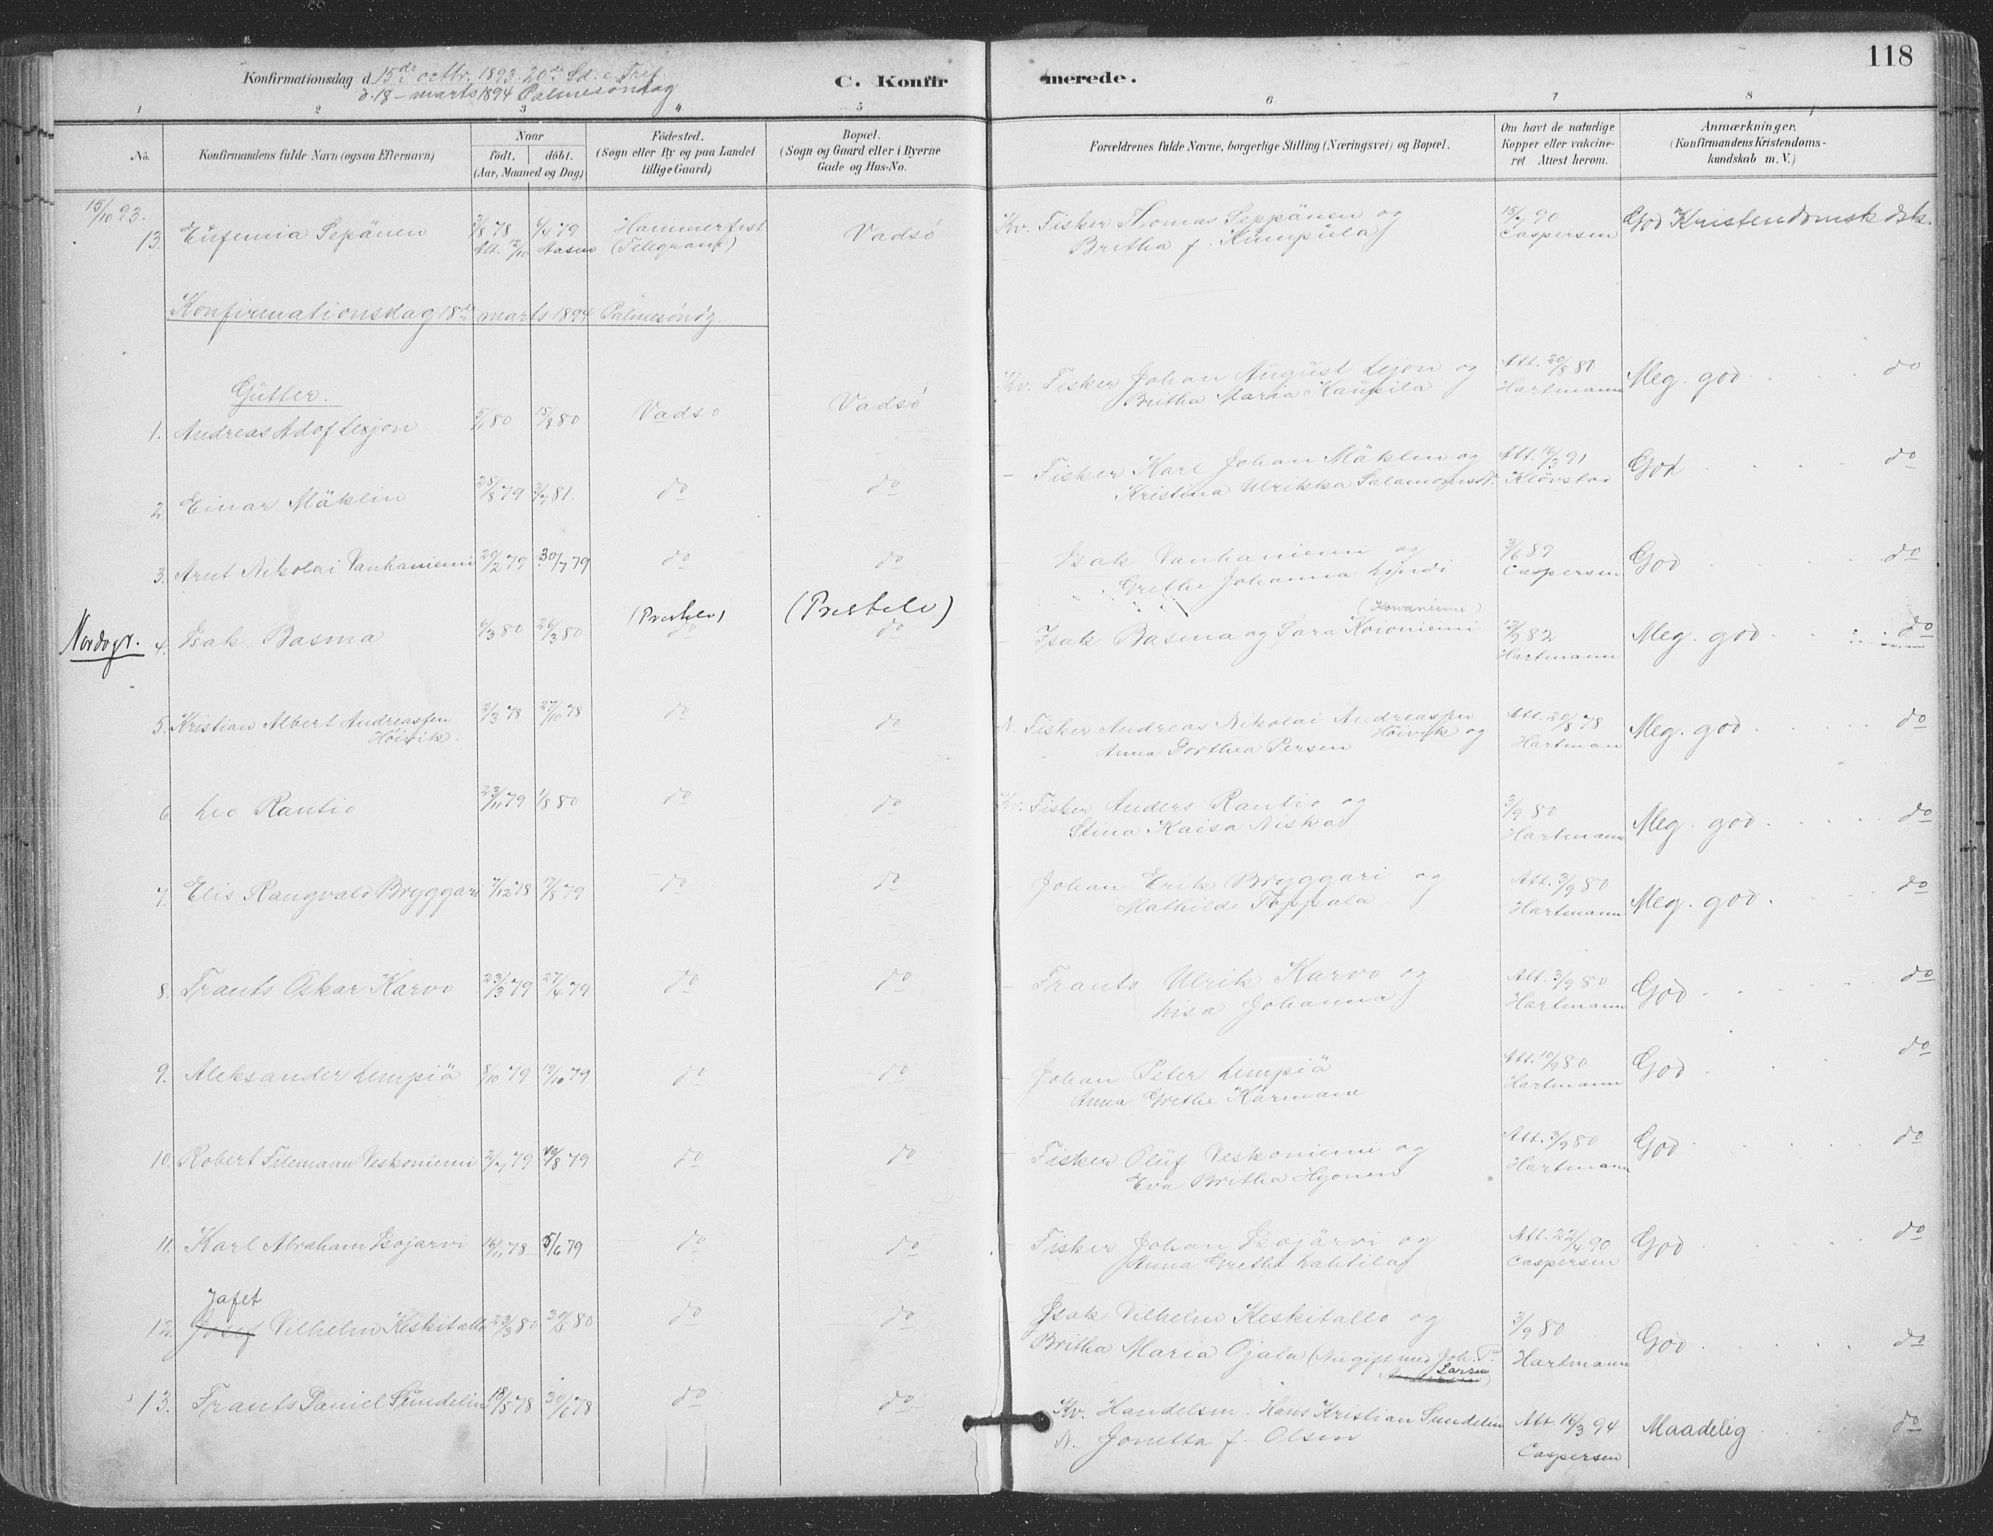 118
Konfirmationsdag d. 15de octbr. 1893. 20de Sd. e. Tref.
d. 18 - marts 1894 Palmesøndag
C. Konfirmerede.
1 2 3 4 5 6 7 8
No. Konfirmandens fulde Navn (ogsaa Efternavn) Naar födt. döbt. (Aar, Maaned og Dag) Födested. (Sogn eller By og paa Landet tillige Gaard) Bopæl. (Sogn og Gaard eller i Byerne Gade og Hus-No. Forældrenes fulde Navne, borgerlige Stilling (Næringsvei) og Bopæl. Om havt de naturlige Kopper eller vakcineret Attest herom. Anmærkninger. (Konfirmandens Kristendomskundskab m. V.)
15/10 93.
13. Eufemia Sepänen 3/8 78 79 Hammerfest Vadsö Kv. Fisker Thomas Seppänen og 90 God Kristendomsk dsk.
Att. 12/10 Aasen (Telegram) Britha f. Kumpula Caspersen
Konfirmationsdag 18de marts 1894 Palmesöndg.
Gutter.
1. Andreas Adof Lejon 80 15/8 80 Vadso Vadsö Kv. Fisker Johan August Lejon og Att. 20/8 80 Meg. god do
Britha Maria Kaupila Hartmann
2. Einar Mäklin 28/8 79 81. do do - Fisker Karl Johan Mäklin og Att. 16/3 91 God do
Kristina Ulrikka Salamonsd. Klövstad
3. Arnt Nikolai Vanhaniemi 20/2 79 30/7 79 do do Isak Vanhaniemi og 3/6 89 God do
Grethe Johanna Lyndi Caspersen
Nordvgr. 4. Isak Basma 6/3 80 26/3 80 (Prestelv) do (Prestelv) do - Isak Basma og Sara Koioniemi (Kovaniemi) 12/9 82 Meg. god do
Hartmann
5. Kristian Albert Andreassen 2/3 78 27/10 78 do do N. Fisker Andreas Nikolai Andreassen Att. 20/8 78 Meg. god do
Höivik. Höivik og Anna Dorthea Persen Hartman
6. Leo Rantio 23/11 79 1/8 80 do do Kv. Fisker Anders Rantio og 3/9 80 Meg. god do
Stina Kaisa Niska Hartmann
7. Elis Rangvald Bryggari 7/12 78 17/8 79 do do - Johan Erik Bryggari og Att. 3/9 80 Meg. god. do
Mathilde Toppala Hartmann
8. Frants Oskar Karvo 23/3 79 27/4 79 do do - Frants Ulrik Karvo og Att. 3/9 80 God do
Lisa Johanna Hartmann
9. Aleksander Lempiä 8/10 79 19/10 79 do do - Johan Peter Lempiä Att. 10/9 80 God do
Anna Grethe Karmane Hartmann
10. Robert Filemann Veskoniemi 2/7 79 10/8 79 do do Fisker Oluf Veskoniemi og Att. 3/9 80 God do
Eva Britha Hyonen Hartmann
11. Karl Abraham Isojarvi 16/11 78 5/6 79 do do Fisker Johan Isojärvi og Att. 22/4 90 God do
Anna Gretha Lahtila Caspersen
Jafet
12. Josef Vilhelm Keskitallo 23/3 80 80 do do Isak Vilhelm Keskitallo og 3/9 80 God do
Britha Maria Ojala (Nu gift med Joh. P. Larsen) Hartmann
13. Frants Daniel Sundelin 18/5 78 30/6 78 do do Kv. Handelsm. Hans Kristian Sundelin Att. 16/3 94 Maadelig do
N. Jonetta f. Olsen Caspersen